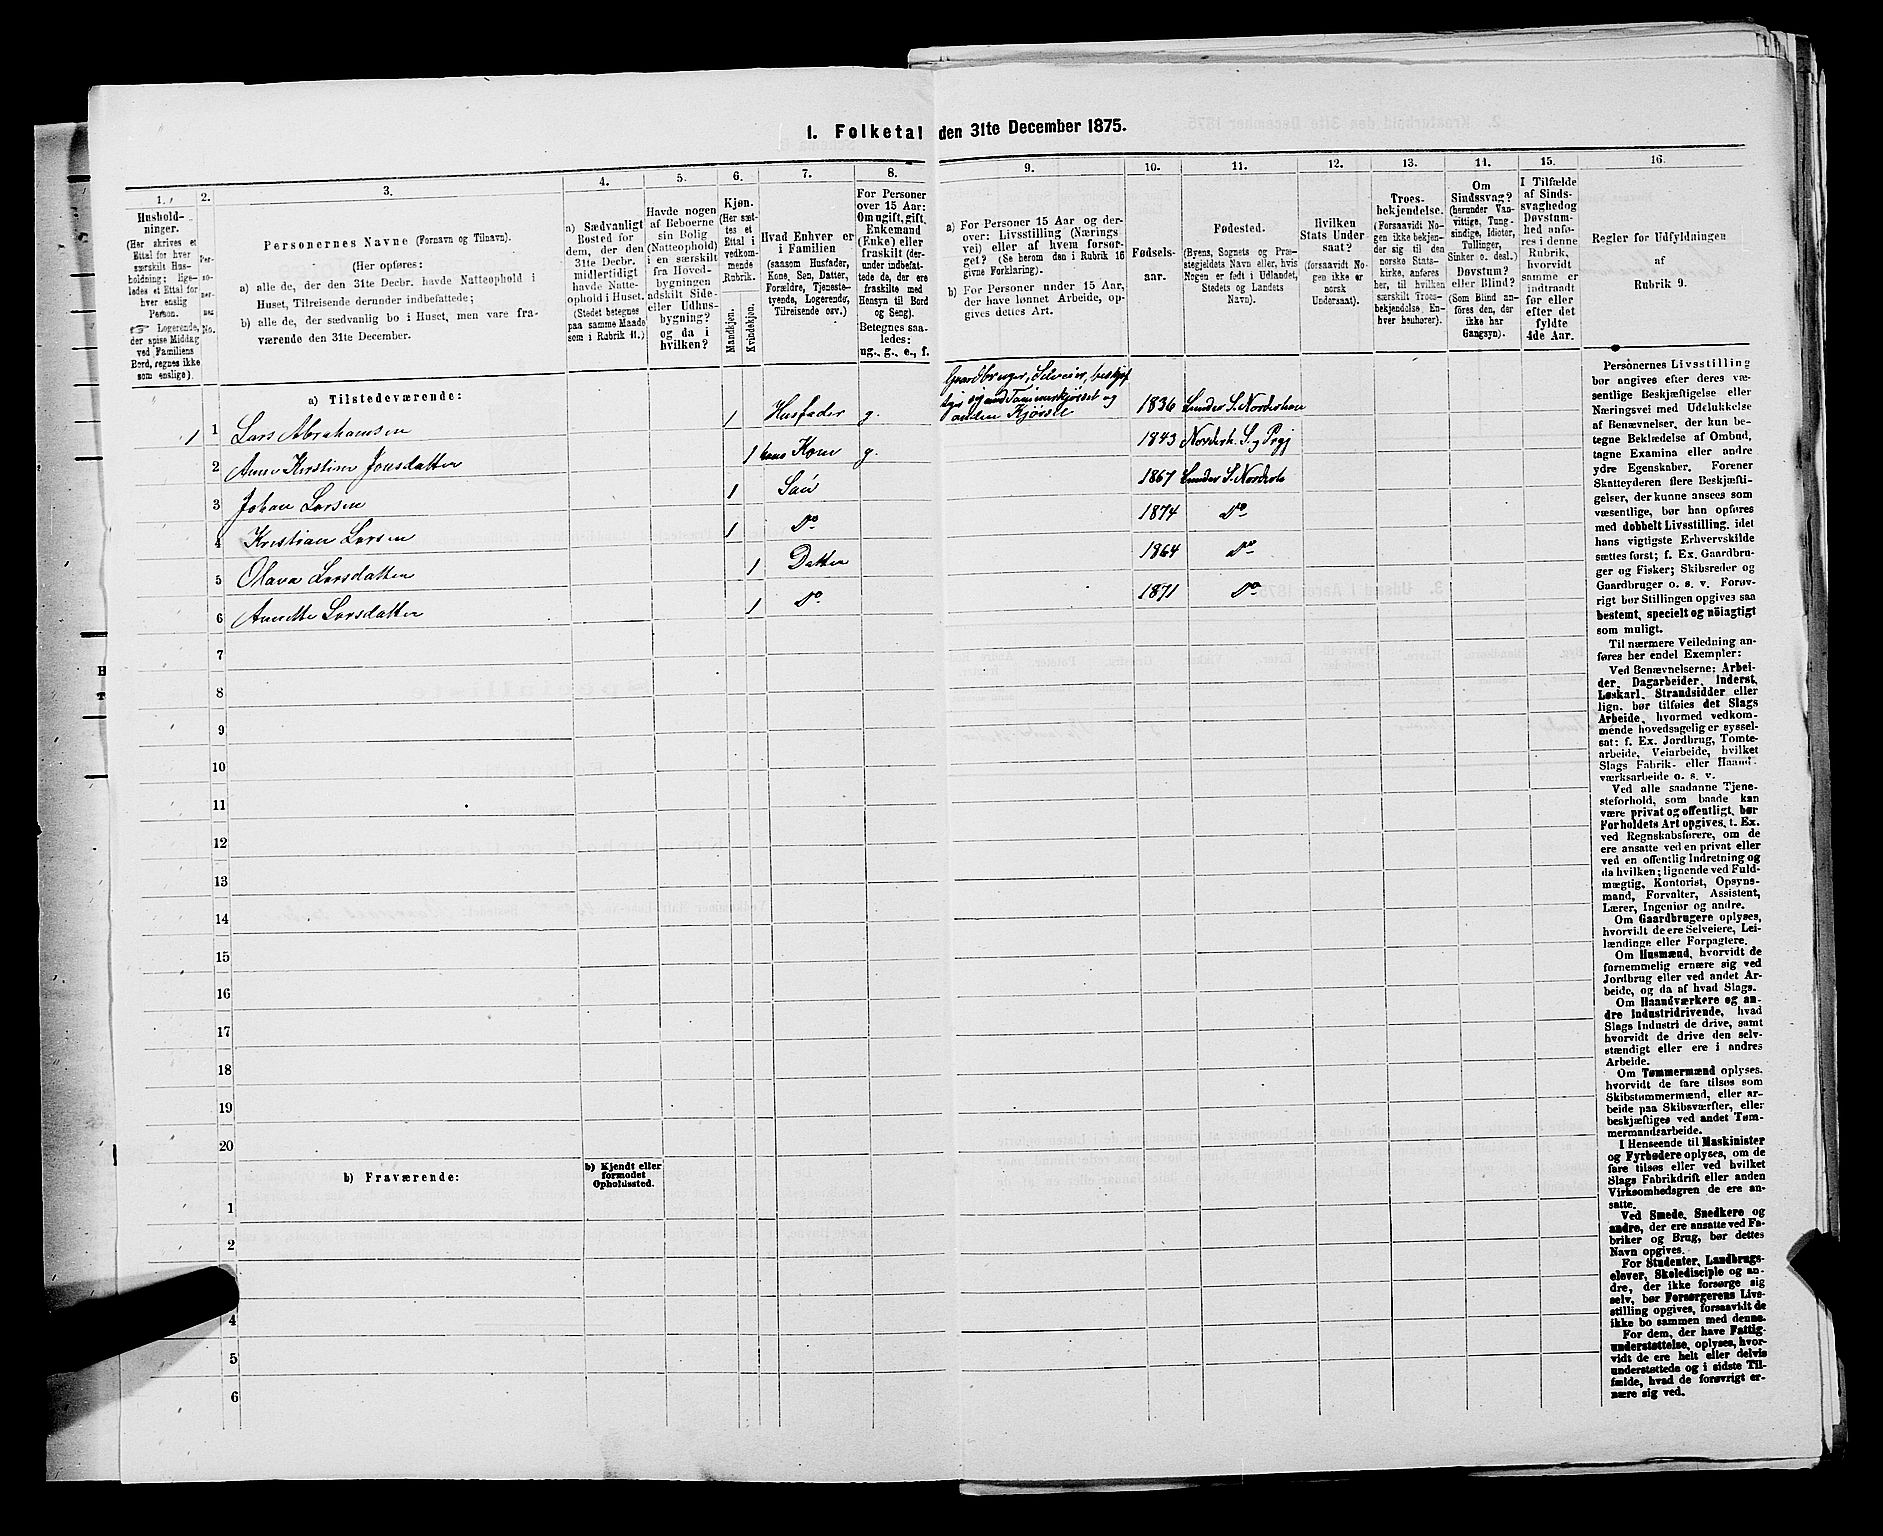 1. Folketal den 31te December 1875.
1. 2. 3. 4. 5. 6. 7. 8. 9. 10. 11. 12. 13. 14. 15. 16.
Hushold-
ninger.
(Her skrives et
Ettal for hver
særskilt Hus-
holdning; lige-
ledes et Ettal for
hver enslig
Person.
☞ Logerende,
der spise Middag
ved Familiens
Bord, regnes ikke
som enslige).
Per-
so-
ner-
nes
No.
Personernes Navne (Fornavn og Tilnavn).
(Her opføres:
a) alle de, der den 31te Decbr. havde Natteophold i
Huset, Tilreisende derunder indbefattede;
b) alle de, der sædvanlig bo i Huset, men vare fra-
værende den 31te December.
a) Sædvanligt
Bosted for
dem, der den
31te Decbr.
midlertidigt
havde Natte-
ophold i Huset.
(Stedet betegnes
paa samme Maade
som i Rubrik 11.)
Havde nogen
af Beboerne
sin Bolig
(Natteophold)
i en særskilt
fra Hoved-
bygningen
adskilt Side-
eller Udhus-
bygning?
og da i
hvilken?
Kjøn.
(Her sæt-
tes et
Ettal i
vedkom-
mende
Rubrik.
Mandkjøn.
Kvindekjøn.
Hvad Enhver er
i Familien
(saasom Husfader,
Kone, Søn, Datter,
Forældre, Tjeneste-
tyende, Logerende,
Tilreisende osv.)
For Personer
over 15 Aar:
Om ugift, gift,
Enkemand
(Enke) eller
fraskilt (der-
under indbefat-
tede de, der ere
fraskilte med
Hensyn til Bord
og Seng).
Betegnes saa-
ledes:
ug., g., e., f.
a) For Personer 15 Aar og der-
over: Livsstilling (Nærings-
vei) eller af hvem forsør-
get? (Se herom den i Rubrik 16
givne Forklaring).
b) For Personer under 15 Aar,
der have lønnet Arbeide, op-
gives dettes Art.
Fødsels-
aar.
Fødested.
(Byens, Sognets og Præ-
stegjeldets Navn eller, hvis
Nogen er født i Udlandet,
Stedets og Landets
Navn).
Hvilken
Stats Under-
saat?
(forsaavidt No-
gen ikke er
norsk
Undersaat).
Troes-
bekjendelse.
(Forsaavidt No-
gen ikke bekjen-
der sig til den
norske Stats-
kirke, anføres
her, til hvilken
særskilt Troes-
bekjendelse, En-
hver henhører).
Om
Sindssvag?
(herunder Van-
vittige, Tung-
sindige, Idioter,
Tullinger,
Sinker o. desl.)
Døvstum?
eller Blind?
(Som Blind an-
føres den, der
ikke har
Gangsyn).
I Tilfælde
af Sinds-
svaghed og
Døvstum-
hed anfø-
res i denne
Rubrik,
hvorvidt
samme er
indtraadt
før eller
efter det
fyldte
4de Aar.
Regler for Udfyldningen
af
Rubrik 9.
a) Tilstedeværende:
1 1 Lars Abrahamsen 1 Husfader g. Gaardbruger, Selveier, beskjæf
tiger sig med Tømmerkjørsel og
anden Kjørsel 1836 Lunder S. Norderhov
2 Anne Kirstine Jonsdatter 1 hans Kone g. 1843 Norderh. S. og Prgj
3 Johan Larsen 1 Søn 1867 Lunder S. Norderh
4 Kristian Larsen 1 Do 1874 Do
5 Olava Larsdatter 1 Datter 1864 Do
6 Annette Larsdatter 1 Do. 1871 Do
7
8
9
10
11
12
13
14
15
16
17
18
19
20
b) Fraværende:
b) Kjendt eller
formodet
Opholdssted.
1
2
4
5
6
Personernes Livsstilling
bør angives efter deres væ-
sentlige Beskjæftigelse eller
Næringsvei med Udelukkelse
af Benævnelser, der kun be-
tegne Beklædelse af Ombud,
tagne Examina eller andre
ydre Egenskaber. Forener
Skatteyderen flere Beskjæfti-
gelser, der kunne ansees som
væsentlige, bør han opføres
med dobbelt Livsstilling, idet
hans vigtigste Erhvervskilde
sættes først; f. Ex. Gaardbru-
ger og Fisker; Skibsreder og
Gaardbruger o. s. v. Forøv-
rigt bør Stillingen opgives saa
bestemt, specielt og nöiagtigt
som muligt.
Til nærmere Veiledning an-
føres her endel Exempler:
Ved Benævnelserne: Arbei-
der, Dagarbeider, Inderst,
Løskarl, Strandsidder eller
lign. bør tilføies det Slags
Arbeide, hvormed vedkom-
mende hovedsagelig er syssel-
sat: f. Ex. Jordbrug, Tomte-
arbeide, Veiarbeide, hvilket
Slags Fabrik- eller Haand-
værksarbeide o. s. v.
Ved alle saadanne Tjene-
steforhold, som baade kan
være privat og offentligt, bør
Forholdets Art opgives, t. Ex.
ved Regnskabsførere, om de
ere ansatte ved en privat eller
ved en offentlig Indretning og
da hvilken; lignende ved Fuld-
mægtig, Kontorist, Opsyns-
mand, Forvalter, Assistent,
Lærer, Ingeniør og andre.
Om Gaardbrugere oplyses,
hvorvidt de ere Selveiere, Lei-
lændinge eller Forpagtere.
Om Husmænd, hvorvidt de
fornemmelig ernære sig ved
Jordbrug eller ved andet Ar-
beide, og da af hvad Slags.
Om Haandværkere og an-
dre Industridrivende, hvad
Slags Industri de drive, samt
hvorvidt de drive den selv-
stændigt eller ere i andres
Arbeide.
Om Tømmermænd oplyses,
hvorvidt de fare tilsøs som
Skibstømmermænd, eller ar-
beide paa Skibsværfter, eller
beskjæftiges ved andet Tøm-
mermandsarbeide.
I Henseende til Maskinister
og Fyrbødere oplyses, om de
fare tilsøs eller ved hvilket
Slags Fabrikdrift eller anden
Virksomhedsgren de ere an-
satte.
Ved Smede, Snedkere og
andre, der ere ansatte ved Fa-
briker og Brug, bør dettes
Navn opgives.
For Studenter, Landbrugs-
elever, Skoledisciple og an-
dre, der ikke forsørge sig
selv, bør Forsørgerens Livs-
stilling opgives, forsaavidt de
ikke bo sammen med denne.
For dem, der have Fattig-
understøttelse, oplyses, hvor-
vidt de ere helt eller delvis
understøttede og i sidste Til-
fælde, hvad de forøvrigt er-
nære sig ved.